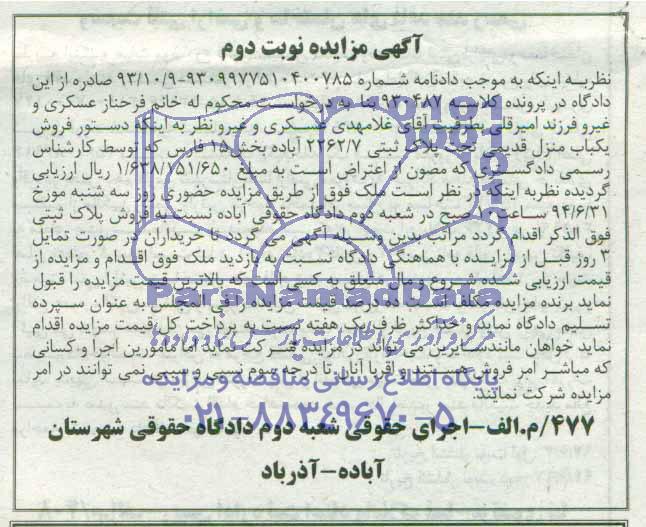 آگهی مزایده نوبت دوم
نظربه اینکه به موجب دادنامه شماره ۹۳۰۹۹۷۷۵۱۰۴۰۰۷۸۵-۹۳/۱۰/۹ صادره از این
دادگاه در پرونده کلاسه ۹۳۰۴۸۷ بنا به درخواست محکوم له خانم فرحناز عسکری و
غیرو فرزند امیرقلی بطرفیت آقای غلامهدی عسکری و غیرو نظر به اینکه دستور فروش
یکباب منزل قدیمی تحت پلاک ثبتی ۲۲۶۲/۷ آباده بخش۱۵ فارس که توسط کارشناس
رسمی دادگستری که مصون از اعتراض است به مبلغ ۱/۶۳۸/۱۵۱/۶۵۰ ریال ارزیابی
گردیده نظربه اینکه در نظر است ملک فوق از طریق مزایده حضوری روز سه شنبه مورخ
۹۴/۶/۳۱ ساعت ۱۰ صبح در شعبه دوم دادگاه حقوقی آباده نسبت به فروش پلاک ثبتی
فوق الذکر اقدام گردد مراتب بدین وسیله آگهی می گردد تا خریداران در صورت تمایل
۳ روز قبل از مزایده با هماهنگی دادگاه نسبت به بازدید ملک فوق اقدام و مزایده از
قیمت ارزیابی شده شروع و مال متعلق به کسی است که بالاترین قیمت مزایده را قبول
نماید برنده مزایده مکلف است ده درصد قیمت مزایده را فی المجلس به عنوان سپرده
تسلیم دادگاه نماید و حداکثر ظرف یک هفته نسبت به پرداخت کل قیمت مزایده اقدام
نماید خواهان مانند سایرین می تواند در مزایده شرکت نماید اما مامورین اجرا و کسانی
که مباشر امر فروش هستند و اقربا آنان تا درجه سوم نسبی و سببی نمی توانند در امر
مزایده شرکت نمایند.
۴۷۷/م.الف-اجرای حقوقی شعبه دوم دادگاه حقوقی شهرستان
آباده-آذرباد
ParsNamadData
مرکز فرآوری اطلاعات پارس نماد داده ها
پایگاه اطلاع رسانی مناقصه و مزایده
۰۲۱-۸۸۳۴۹۶۷۰-۵